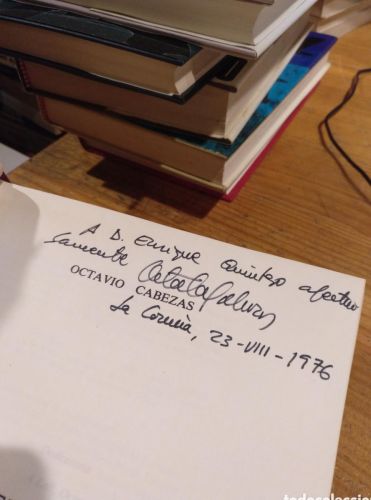 A D. Enrique Quiroga afectuo
samente
OCTAVIO CABEZAS
La Coruña, 23-VIII-1976
todocoleccion